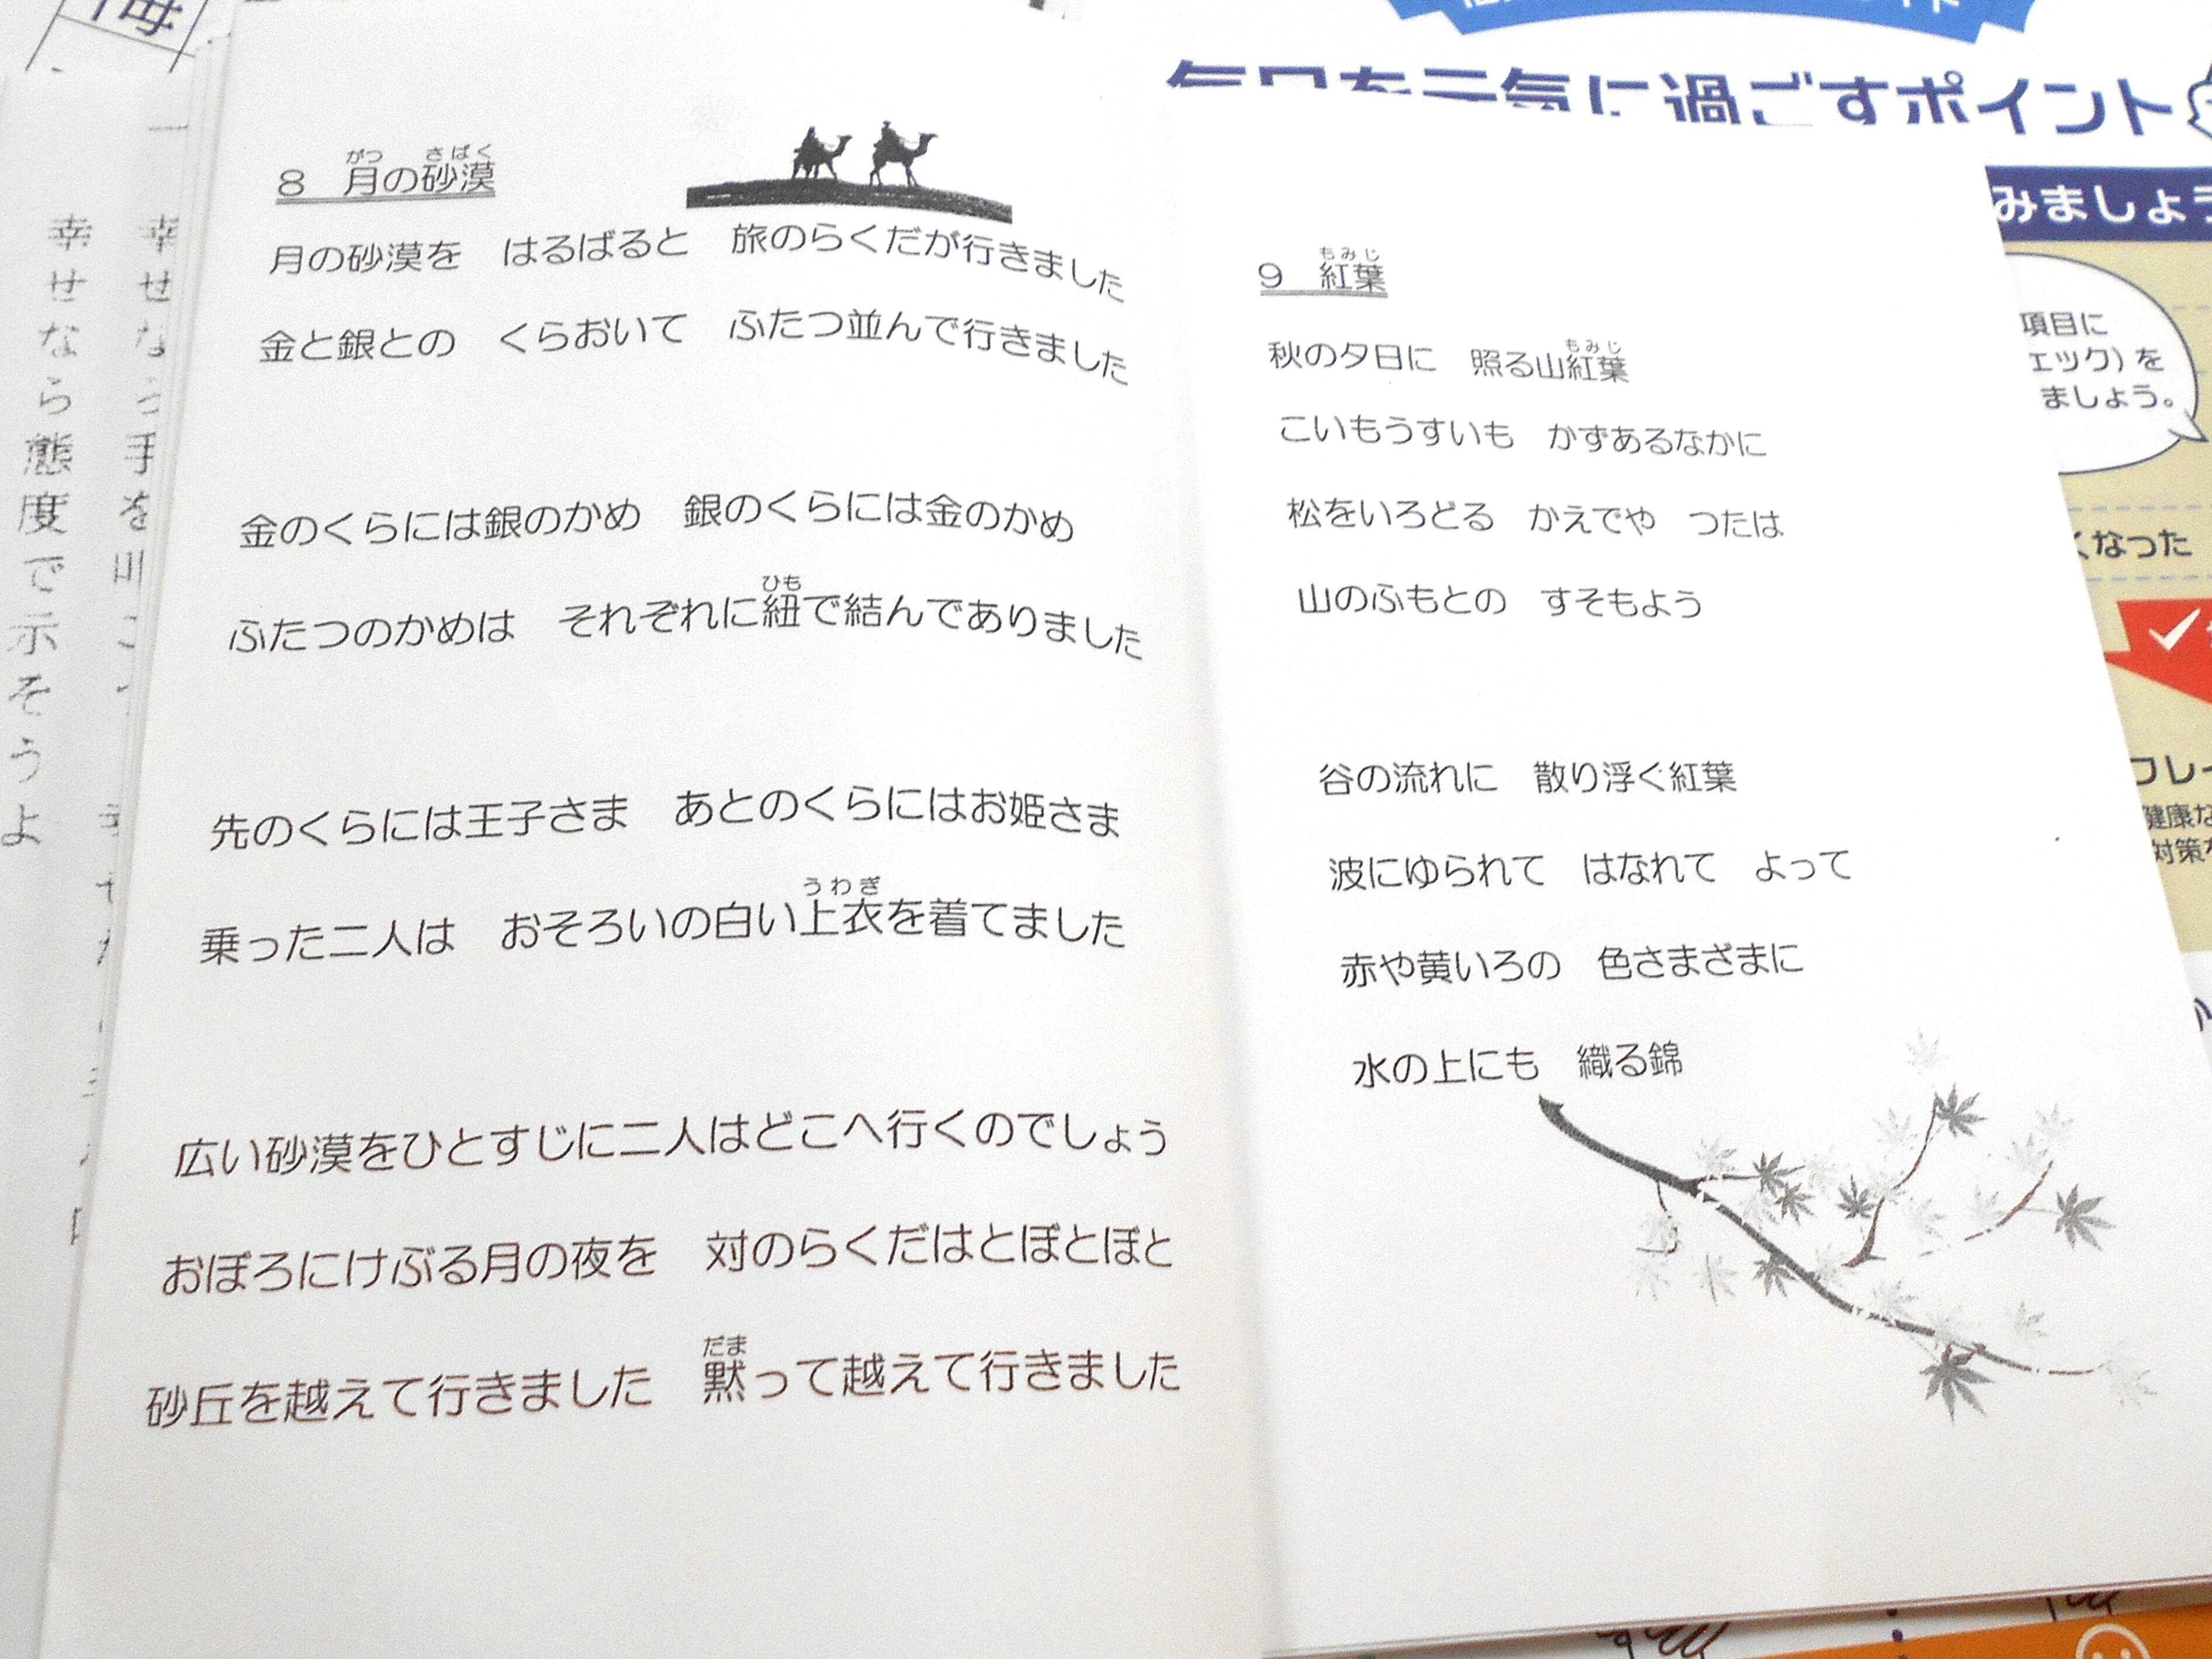 8 月の砂漠
がつ さばく
月の砂漠を はるばると 旅のらくだが行きました
金と銀との くらおいて ふたつ並んで行きました
金のくらには銀のかめ 銀のくらには金のかめ
ひも
ふたつのかめは それぞれに紐で結んでありました
先のくらには王子さま あとのくらにはお姫さま
うわぎ
乗った二人は おそろいの白い上衣を着てました
広い砂漠をひとすじに二人はどこへ行くのでしょう
おぼろにけぶる月の夜を 対のらくだはとぼとぼと
だま
砂丘を越えて行きました 黙って越えて行きました
もみじ
9 紅葉
もみじ
秋の夕日に 照る山紅葉
こいもうすいも かずあるなかに
松をいろどる かえでや つたは
山のふもとの すそもよう
谷の流れに 散り浮ぐ紅葉
波にゆられて はなれて よって
赤や黄いろの 色さまざまに
水の上にも 織る錦
毎日を元気に過ごすポイント
みましょう
項目に
ェック)を
ましょう。
くなった
フレイ
健康な
対策
幸せなら態度で示そうよ
幸せな
手を